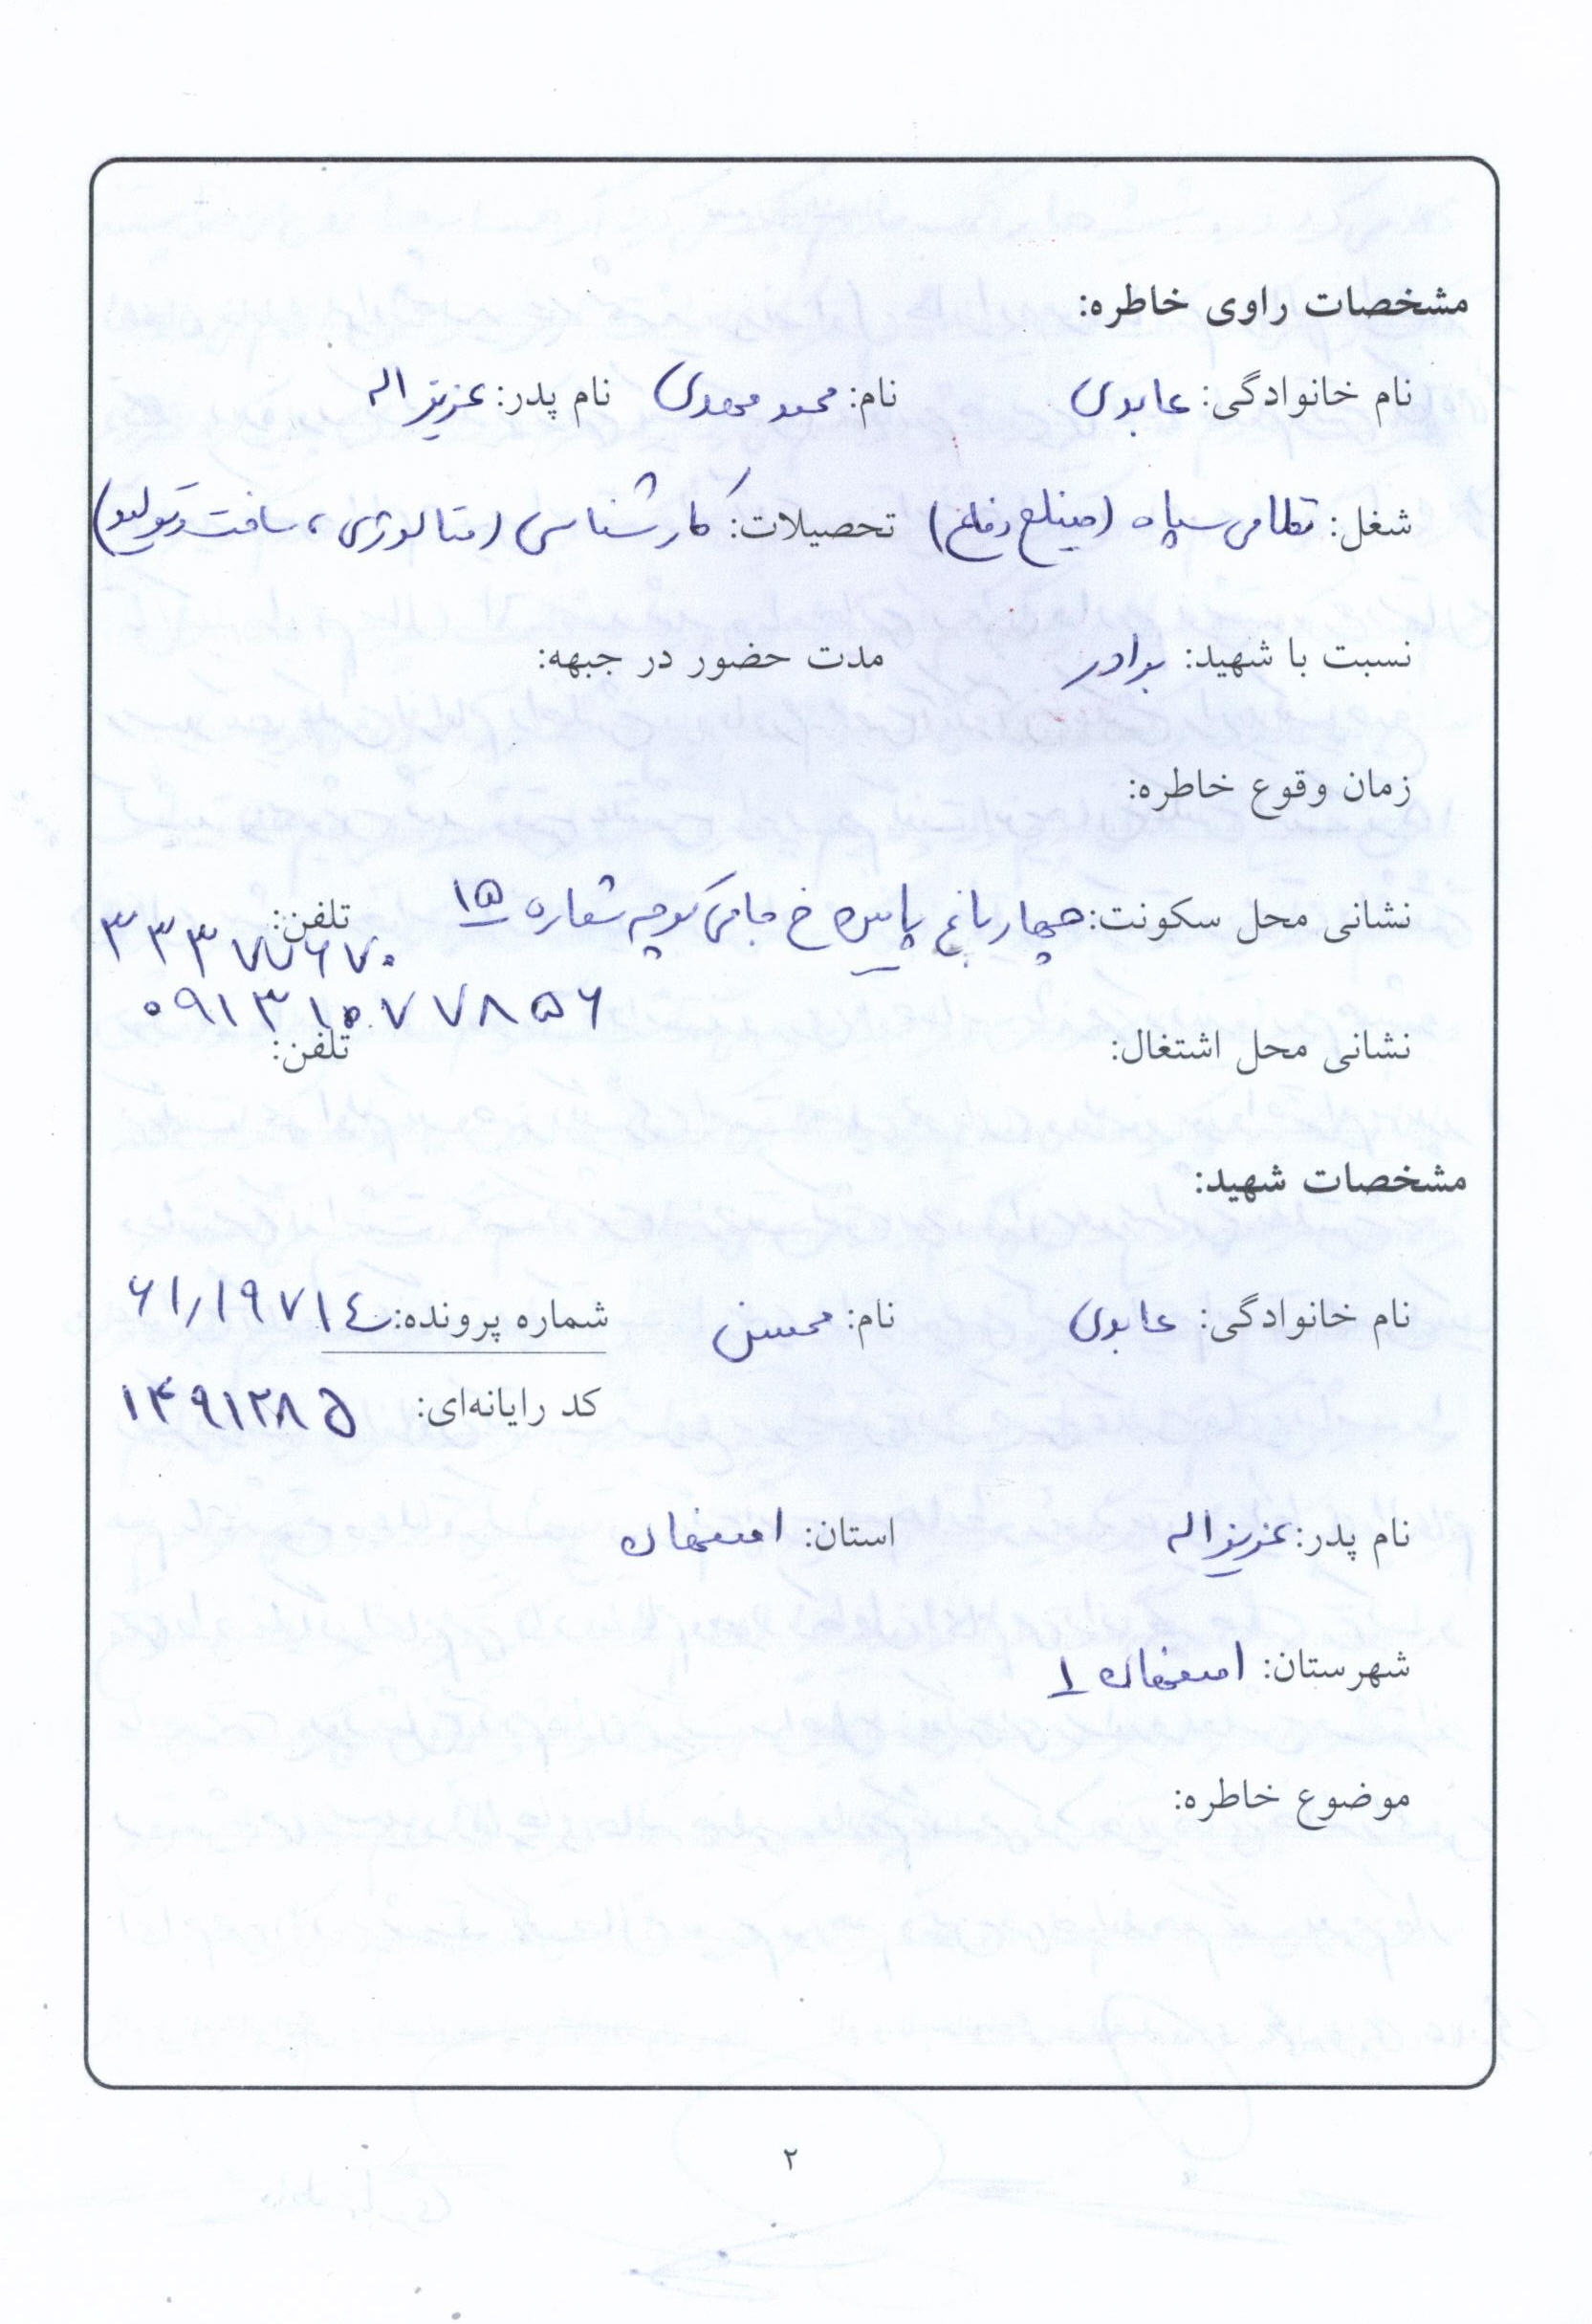 مشخصات راوی خاطره:
نام خانوادگی: عابدی نام: محمد مهدی نام پدر: عزیز اله
شغل: نظامی سپاه (صنایع دفاع) تحصیلات: کارشناسی (متالوژی، ساخت و تولید)
نسبت با شهید: برادر مدت حضور در جبهه:
زمان وقوع خاطره:
نشانی محل سکونت: چهارباغ پایین خ جامی کوچه شماره ۱۵ تلفن:
۳۳۳۷۷۶۷۰
۰۹۱۳۱۰۷۷۸۵۶
نشانی محل اشتغال: تلفن:
مشخصات شهید:
نام خانوادگی: عابدی نام: محسن شماره پرونده: ۶۱/۱۹۷۱٤
کد رایانه‌ای: ۱۴۹۱۲۸۵
نام پدر: عزیز اله استان: اصفهان
شهرستان: اصفهان ۱
موضوع خاطره:
۲